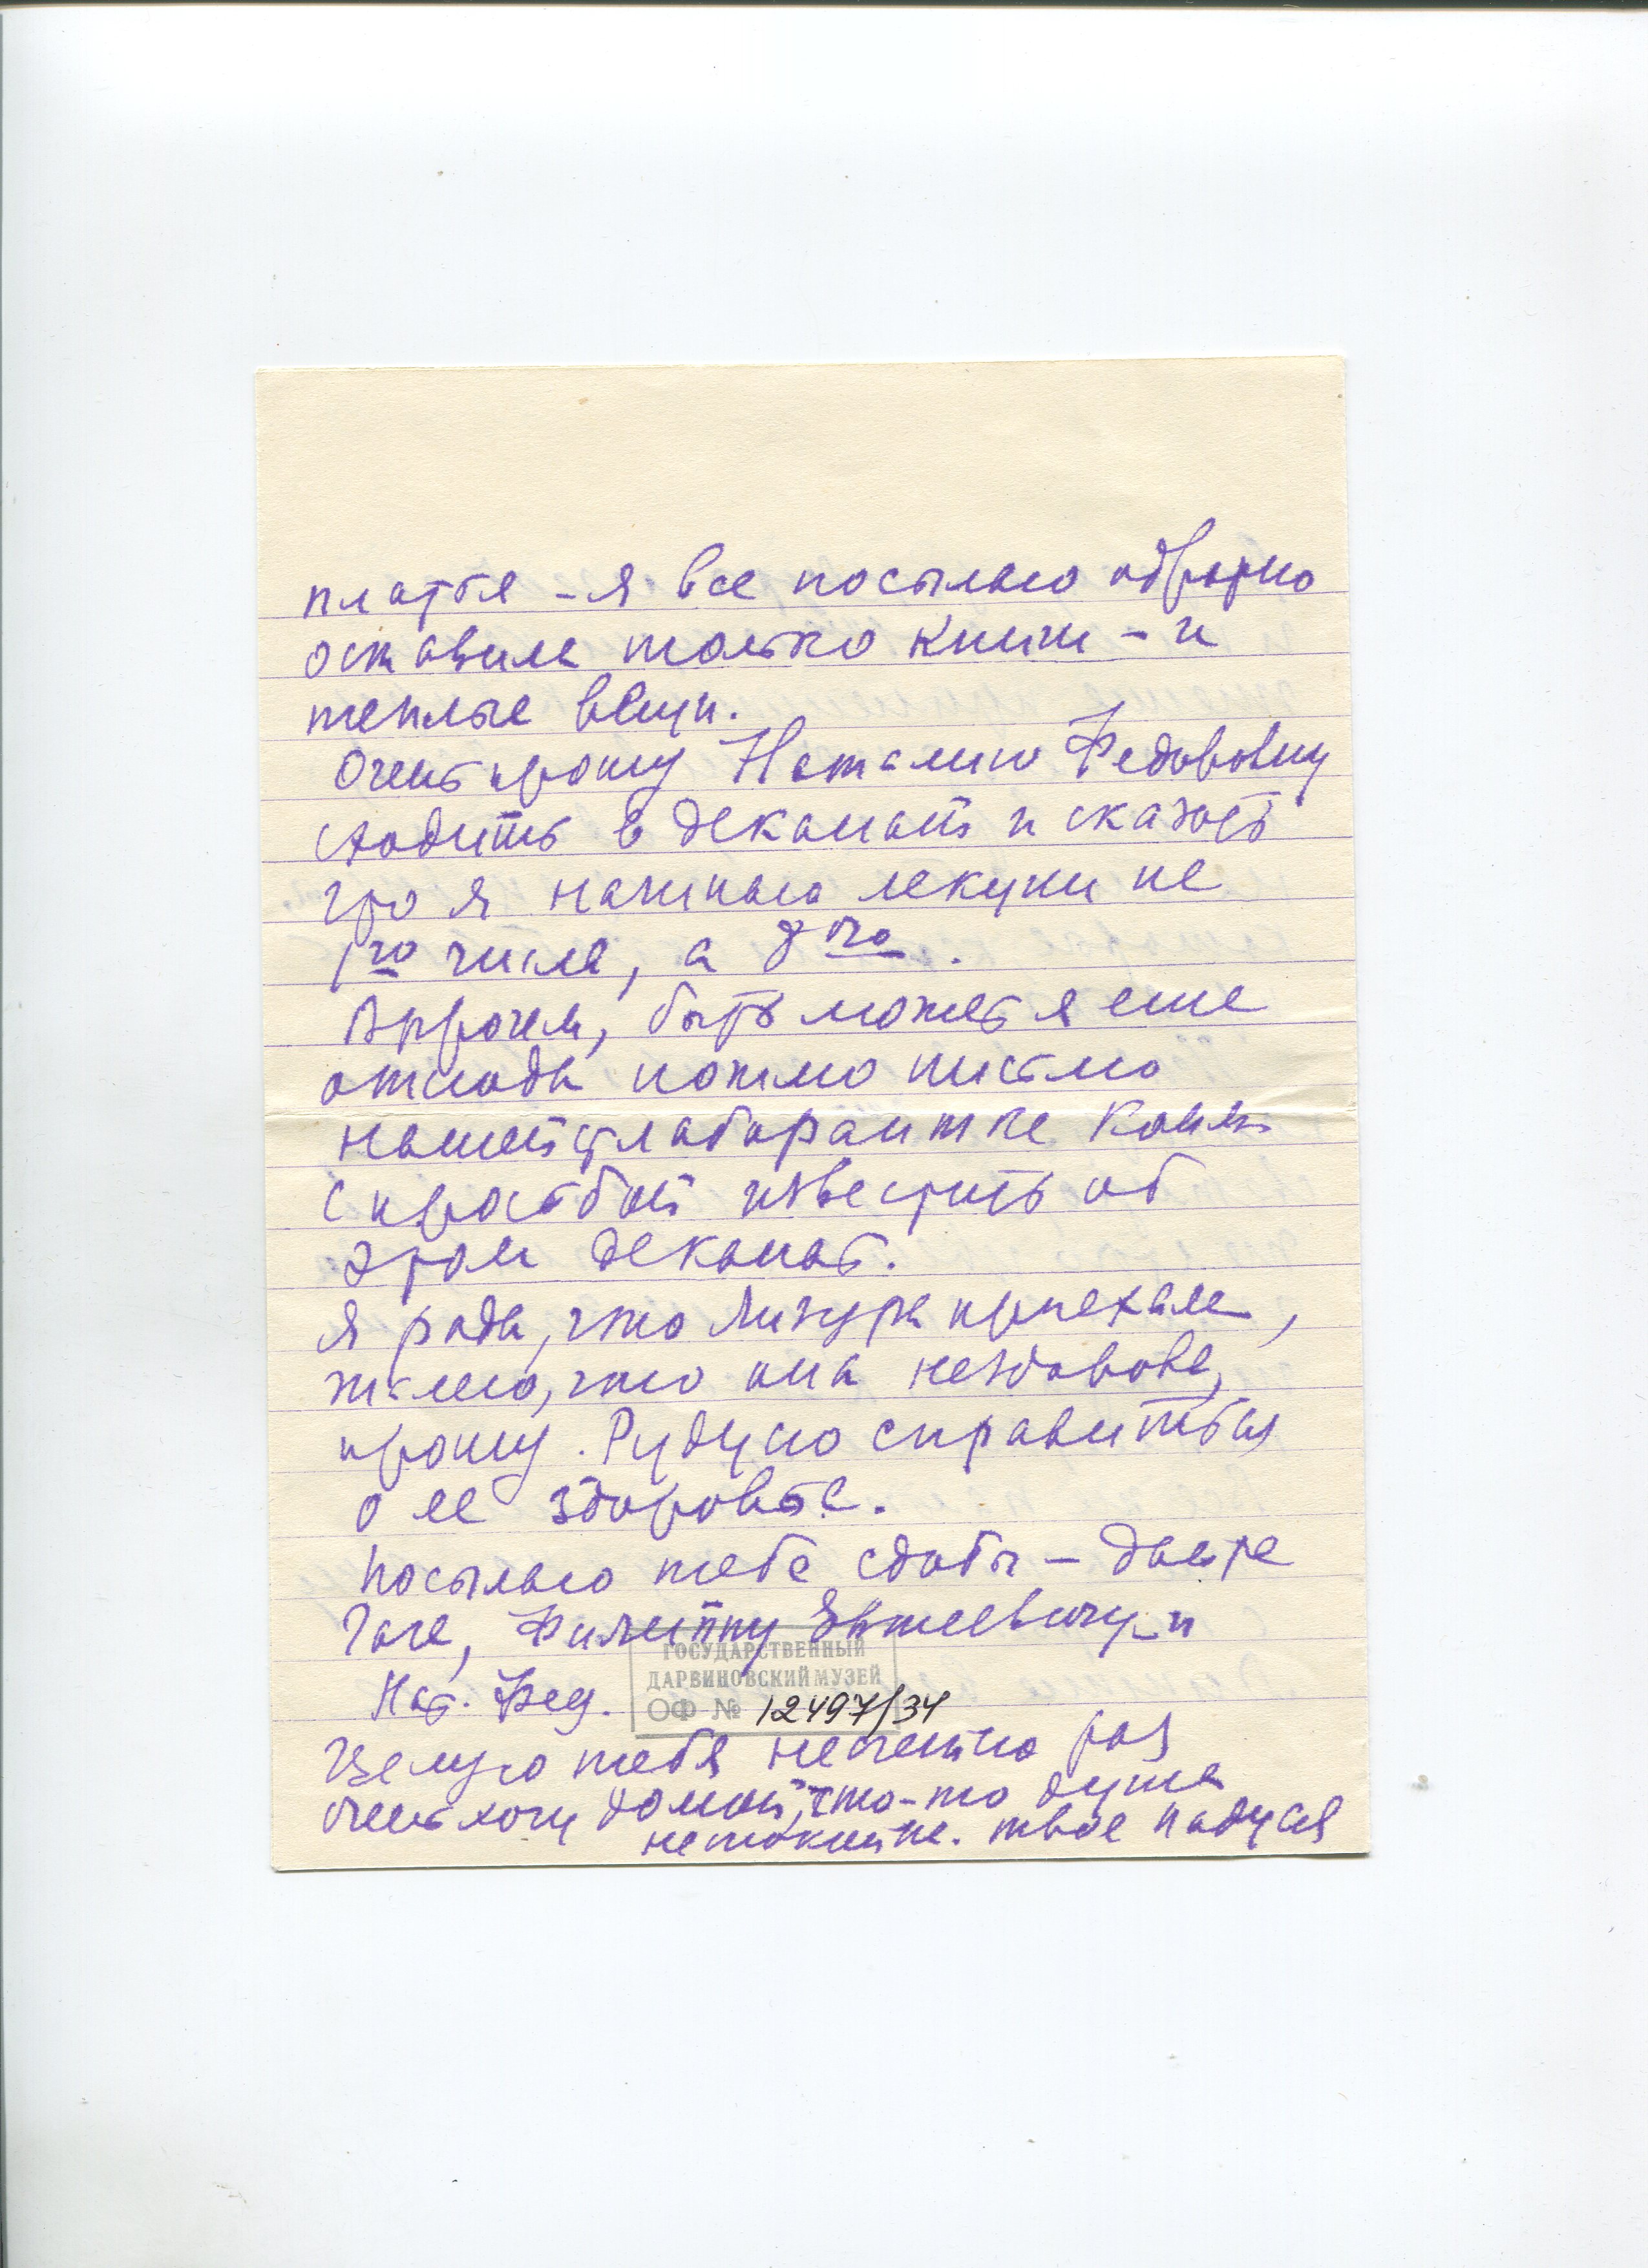 платья – я все посылаю обратно
оставила только книги – и
теплые вещи.
Очень прошу Наталию Федоровну
сходить в деканат и сказать
что я начинаю лекции не
1го числа, а 8го.
Впрочем, быть может я еще
отсюда пошлю письмо
нашей лаборантке
с просьбой известить об
этом деканат.
Я рада, что приехала,
жалею, что она нездорова,
прошу Рудусю справиться
о ее здоровье.
Посылаю тебе сдобы – дайте
Гаге, Филиппу Евтеевичу и
Нат. Фед.
ГОСУДАРСТВЕННЫЙ
ДАРВИНОВСКИЙ МУЗЕЙ
ОФ № 12497/34
Целую тебя несчетно раз
Очень хочу домой, что-то душа
неспокойна. твоя Надуся